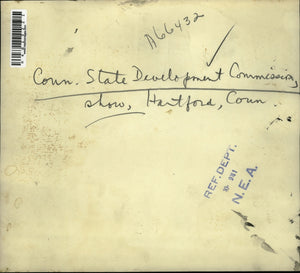 A66432
Conn. State Development Commission,
show, Hartford, Conn.
REF. DEPT.
N.E.A.